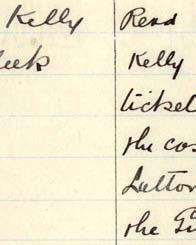 Kelly
Read
Kelly
ticket
the cos
Lutton
the